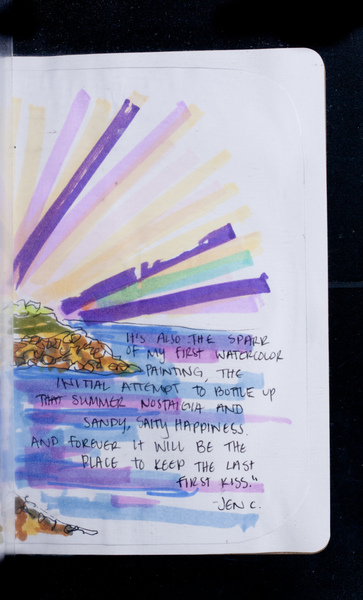 IT'S ALSO THE SPARK
OF MY FIRST WATERCOLOR
PAINTING, THE
INITIAL ATTEMPT TO BOTTLE UP
THAT SUMMER NOSTALGIA AND
SANDY, SALTY HAPPINESS.
AND FOREVER IT WILL BE THE
PLACE TO KEEP THE LAST
FIRST KISS."
-JEN C.